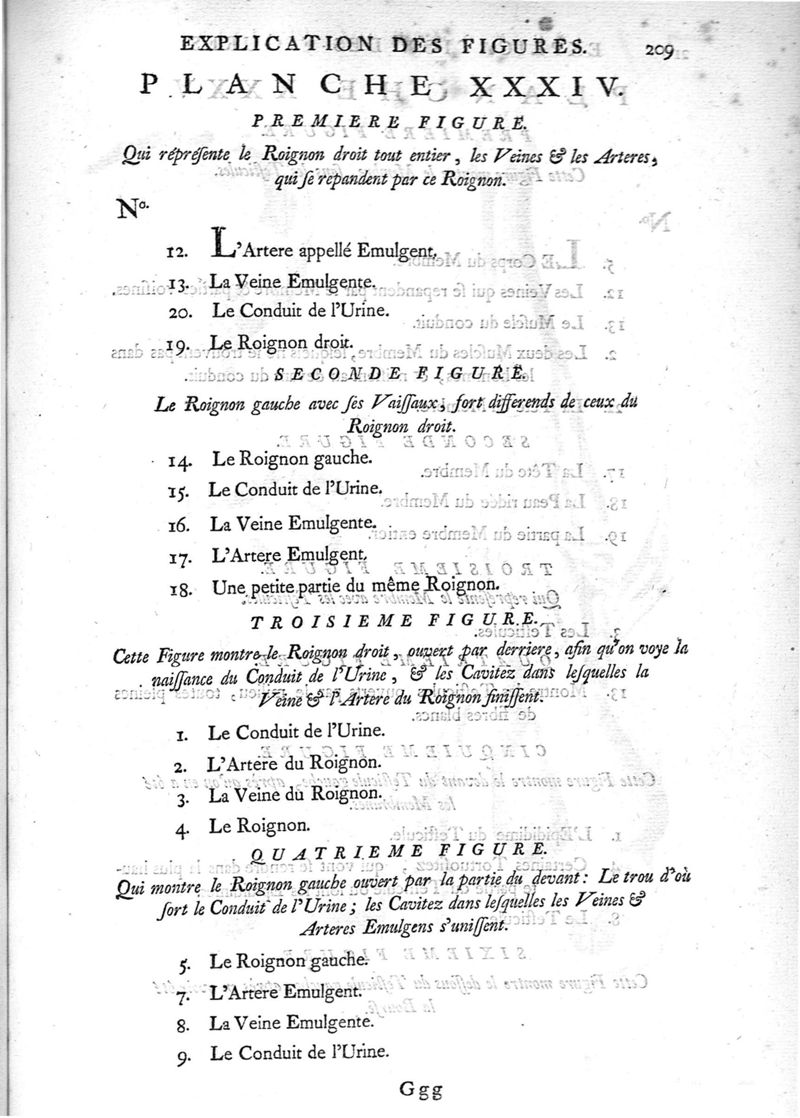 EXPLICATION DES FIGURES. 209
PLANCHE XXXIV.
PREMIERE FIGURE.
Qui répréſente le Roignon droit tout entier, les Veines & les Arteres,
qui ſe repandent par ce Roignon.
No.
12. L'Artere appellé Emulgent.
13. La Veine Emulgente.
20. Le Conduit de l'Urine.
19. Le Roignon droit.
SECONDE FIGURE.
Le Roignon gauche avec ſes Vaiſſaux, fort differends de ceux du
Roignon droit.
14. Le Roignon gauche.
15. Le Conduit de l'Urine.
16. La Veine Emulgente.
17. L'Artere Emulgent.
18. Une petite partie du même Roignon.
TROISIEME FIGURE.
Cette Figure montre le Roignon droit, ouvert par derriere, afin qu'on voye la
naiſſance du Conduit de l'Urine, & les Cavitez dans leſquelles la
Veine & l'Artere du Roignon finiſſent.
1. Le Conduit de l'Urine.
2. L'Artere du Roignon.
3. La Veine du Roignon.
4. Le Roignon.
QUATRIEME FIGURE.
Qui montre le Roignon gauche ouvert par la partie du devant: Le trou d'où
ſort le Conduit de l'Urine; les Cavitez dans leſquelles les Veines &
Arteres Emulgens s'uniſſent.
5. Le Roignon gauche.
7. L'Artere Emulgent.
8. La Veine Emulgente.
9. Le Conduit de l'Urine.
Ggg